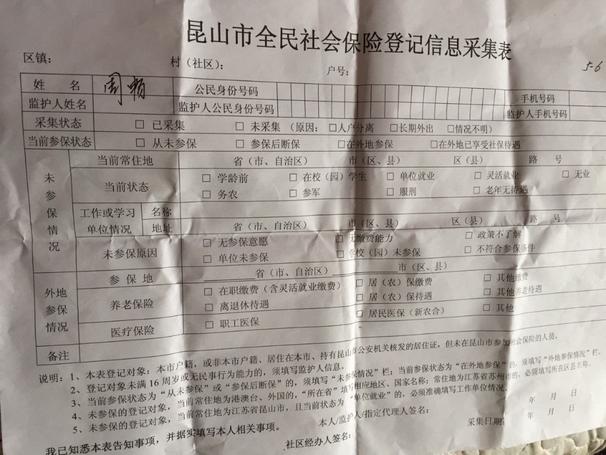 昆山市全民社会保险登记信息采集表
区镇： 村（社区）： 户号： 5-6
姓 名 周 公民身份号码 手机号码
监护人姓名 监护人公民身份号码 监护人手机号码
采集状态 □ 已采集 □ 未采集 （原因：□人户分离 □长期外出 □情况不明）
当前参保状态 □ 从未参保 □ 参保后断保 □ 在外地参保 □在外地已享受社保待遇
未参保情况 当前常住地 省（市、自治区） 市（区、县） 区（县） 路 号
当前状态 □ 学龄前 □ 在校（园）学生 □ 单位就业 □ 灵活就业 □ 无业
□ 务农 □ 参军 □ 服刑 □ 老年无待遇
工作或学习单位情况 名称
地址 省（市、自治区） 市（区、县） 区（县） 路 号
未参保原因 □ 无参保意愿 □ 无缴费能力 □ 政策不了解
□ 单位未参保 □ 学校（园）未参保 □ 不符合参保条件
外地参保情况 参 保 地 省（市、自治区） 市（区、县）
养老保险 □ 在职缴费（含灵活就业缴费） □ 居（农）保缴费 □ 其他缴费
□ 离退休待遇 □ 居（农）保待遇 □ 其他养老待遇
医疗保险 □ 职工医保 □ 居民医保（新农合） □ 其他
备注
说明：1、本表登记对象：本市户籍，或非本市户籍、居住在本市、持有昆山市公安机关核发的居住证，但未在昆山市参加社会保险的人员。
2、登记对象未满16周岁或无民事行为能力的，须填写监护人信息。
3、当前参保状态为“从未参保”或“参保后断保”的，须填写“未参保情况”栏；当前参保状态为“在外地参保”的，须填写“外地参保情况”栏。
4、未参保的登记对象，当前常住地为港澳台、外国的，“所在省”填写相应地区、国家名称；常住地为江苏省苏州市的，必须填写所在区县名称。
5、未参保的登记对象，当前常住地为江苏省昆山市，且当前状态为“单位就业”的，必须准确填写工作单位情况。
我已知悉本表告知事项，并据实填写本人相关事项。 本人/监护人/指定代理人签名： 年 月 日
社区经办人签名： 采集日期： 年 月 日